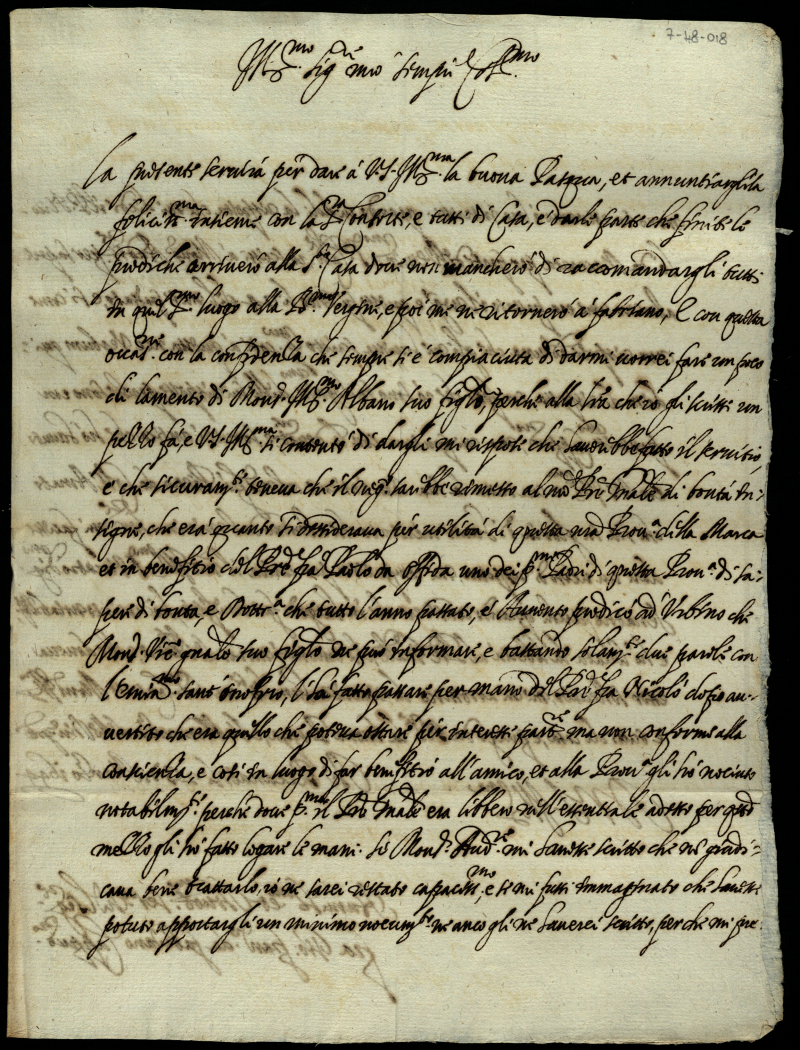 7-48-018
Ill.mo sig.re mio sempre Col.mo
la presente servirá per dare á V.S. Ill.ma la buona Pasqua, et annuntiargliela
felicis.ma insieme con la S.ra Contessa, e tutti di Casa, e darli parte che finite le
prediche arriveró alla S.ta Casa dove non mancheró di racomandargli tutti
in quel S.mo luogo alla B.ma Vergine, e poi me ne ritorneró á fabriano, E con questa
occas.ne con la confidenza che sempre si é compiaciuta di darmi vorrei fare un poco
di lamento di Mons.r Ill.mo Albano suo figlo, perche alla lra che io gli scrissi un
pezzo fá, e V.S. Ill.ma si contentó di dargli mi rispose che havrebbe fatto il servitio,
e che sicuram.te teneva che il neg.o sarebbe rimesso al n.ro P.re G.nale di bontá in-
signe, che era quanto si desiderava per utilitá di questa n.ra Prov.a della Marca
et in benefitio del P.re fra Paolo da Offida uno dei p.mi Padri di questa Prov.a di sa-
pere di bontá, e Dottr.a che tutto l'anno passato, e Avvento predicó ad Urbino che
Mons.r suo figlo ne puó informare, e bastando solam.te due parole con
l'Emin.mo sant'Onofrio, l'há fatto passare per mano del P.re fra Nicoló dopo av-
vertito che era quello che poteva ostare per interesse part.re ma non conforme alla
conscienza, e cosi in luogo di far benefitio all'amico, et alla Prov.a gli há nociuto
notabilm.te perche dove p.ma il P.re G.nale era libbero nell'essentiale adesso per questo
mezzo gli há fatto legare le mani. Se Mons.r Aud.re mi havesse scritto che ne giudi-
cava bene trattarlo, io ne sarei restato capacis.mo, e se mi fussi immaginato che havesse
potuto apportargli un minimo nocum.to ne anco gli ne haverei scritto, perche mi pre-